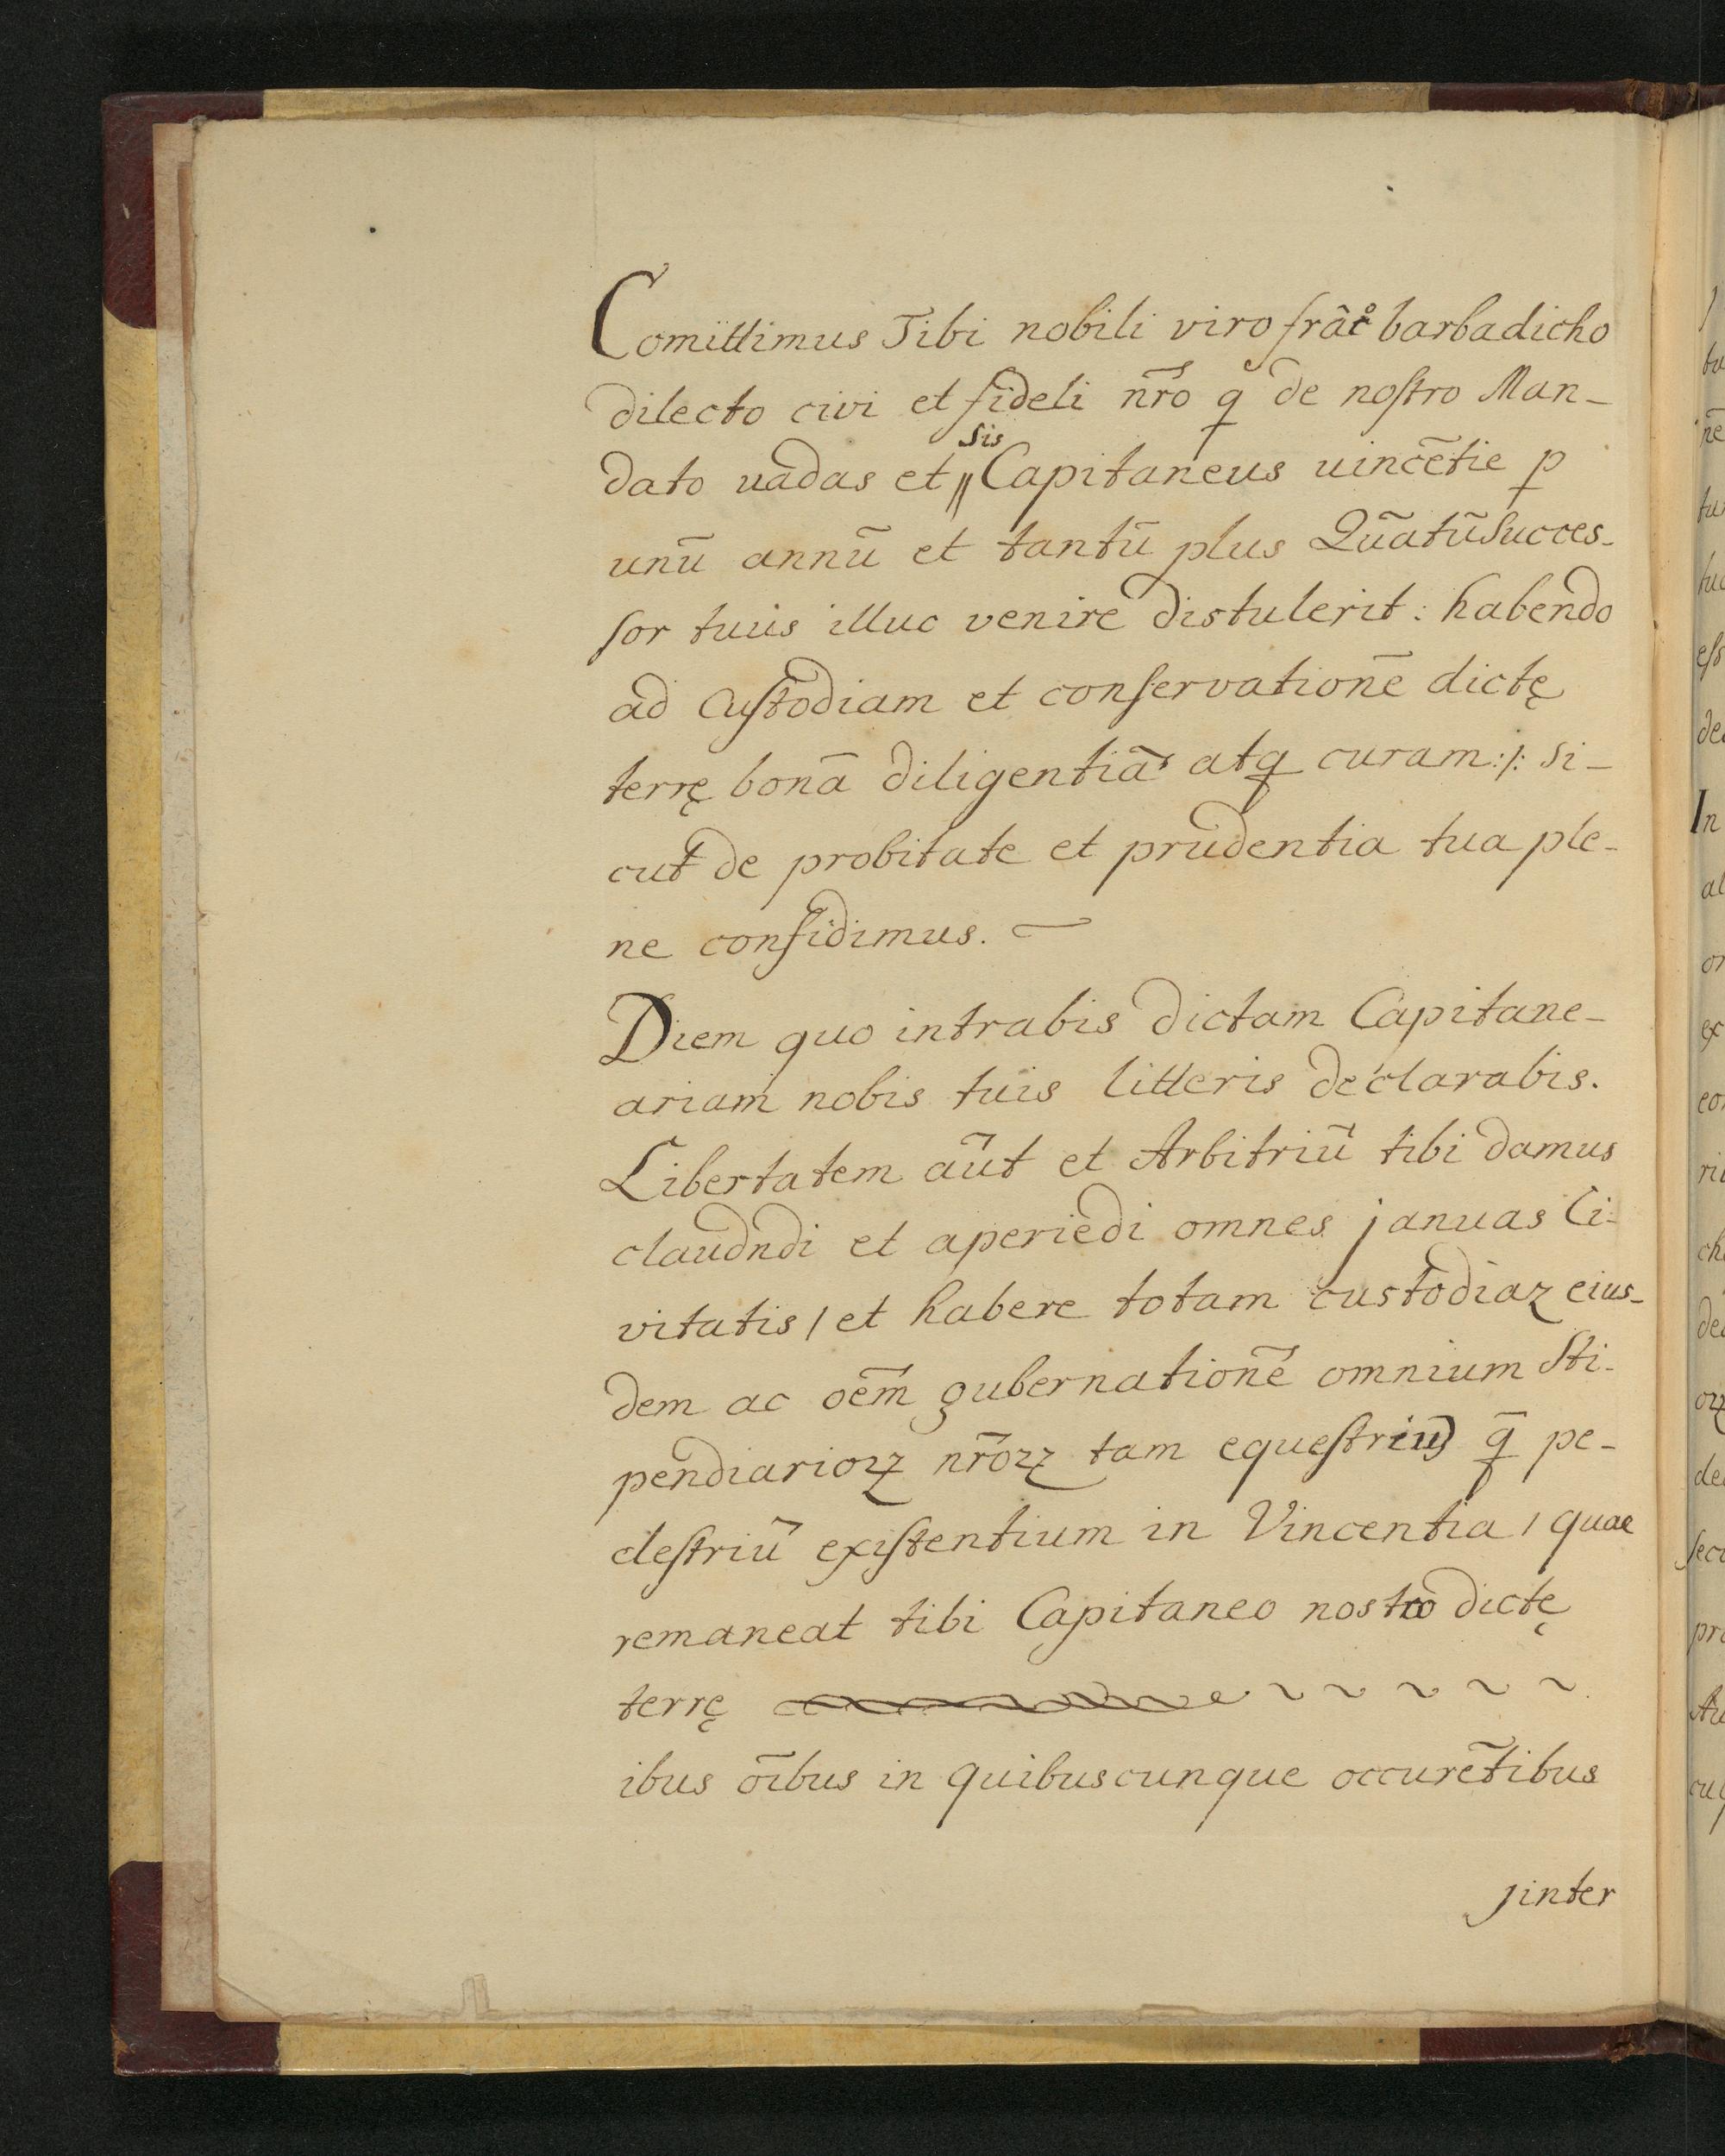 Comittimus Tibi nobili viro frãc̊ barbadicho
dilecto civi et fideli nr̃o q̃ de noſtro Man-
dato uadas et ⸗ Sis Capitaneus uincẽtie p̱
unũ annũ et tantũ plus Quãtũ Succes-
ſor tuus illuc venire distulerit: habendo
ad Cuſtodiam et conſervationẽ dictę
terrę bonã diligentiã atq̃ curam:/: Si-
cut de probitate et prudentia tua ple-
ne confidimus.
Diem quo intrabis dictam Capitane-
ariam nobis tuis litteris declarabis.
Libertatem aũt et Arbitriũ tibi damus
claudndi et aperiedi omnes januas Ci-
vitatis / et habere totam custodiaz eius-
dem ac oẽm gubernationẽ omnium Sti-
pendiarioꝝ nr̃oꝝ tam equeſtriũ q̃ pe-
deſtriũ exiſtentium in Vincentia / quae
remaneat tibi Capitaneo nostro dictę
terrę ~ ~ ~ ~ ~
ibus oĩbus in quibuscunque occurẽtibus
jinter